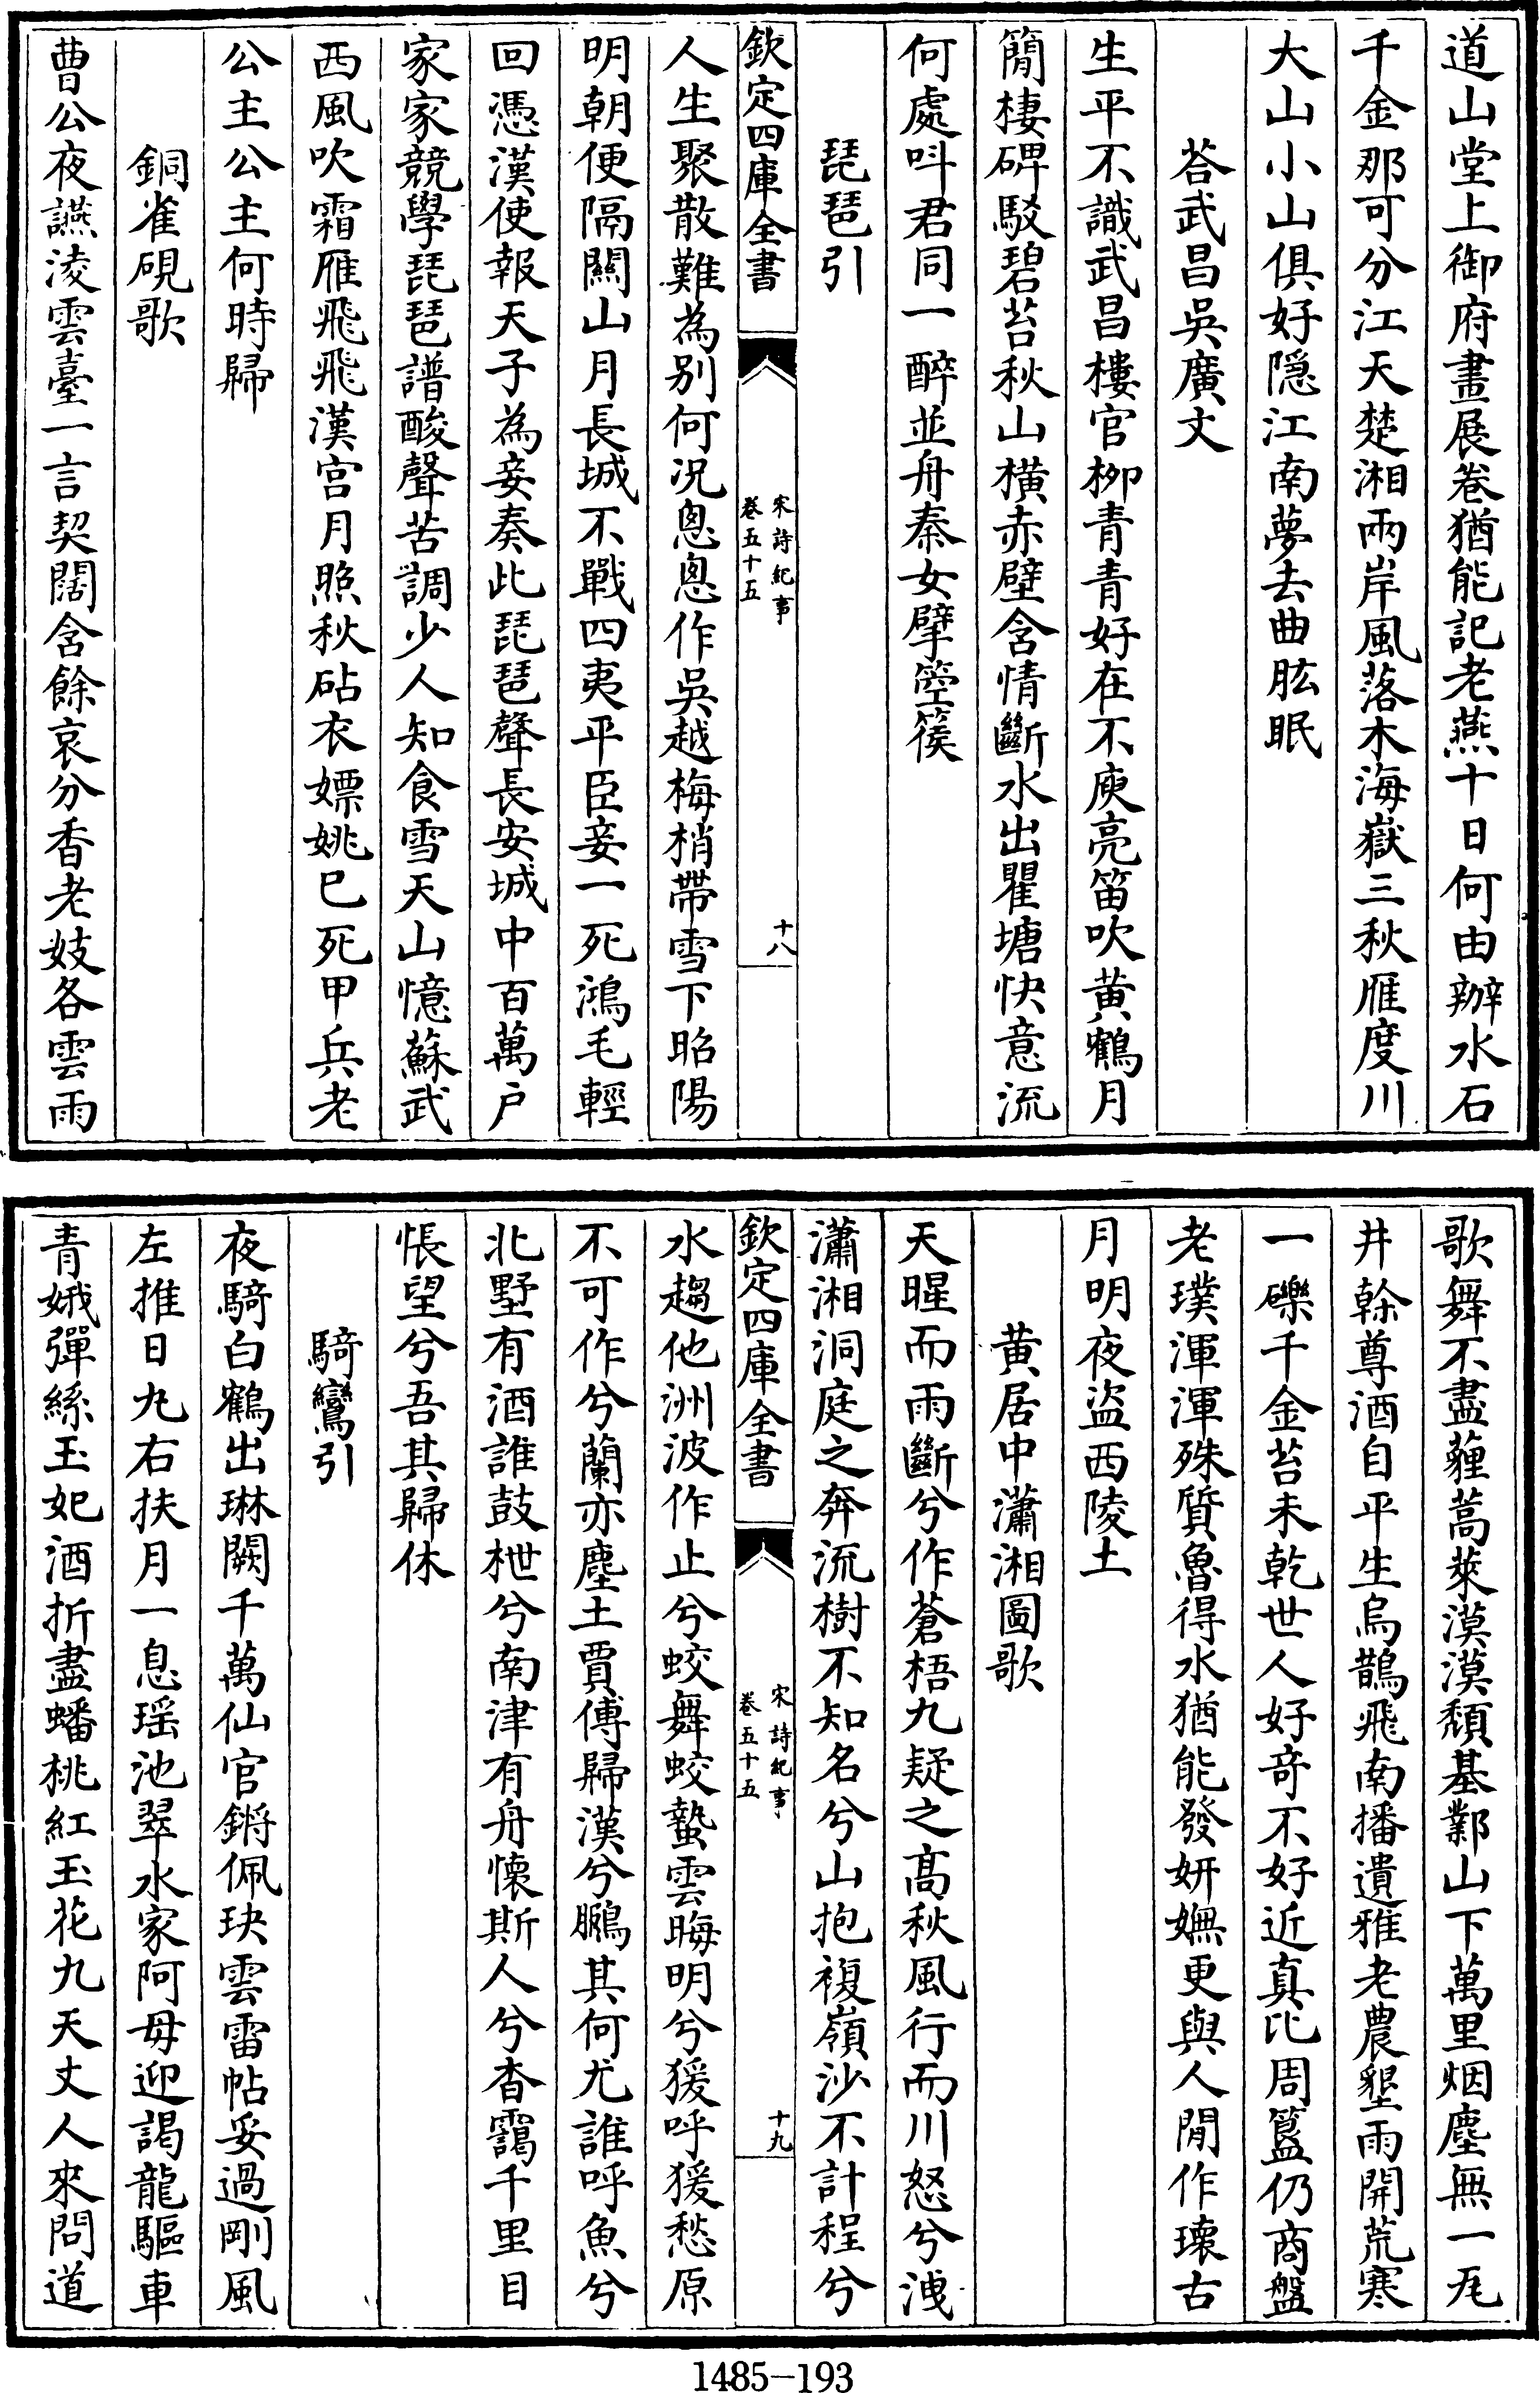 道山堂上御府畫展卷猶能記老燕十日何由辦水石
千金那可分江天楚湘兩岸風落木海嶽三秋雁度川
大山小山俱好隠江南夢去曲肱眠
荅武昌吳廣文
生平不識武昌樓官栁青青好在不庾亮笛吹黄鶴月
簡棲碑駁碧苔秋山横赤壁含情斷水出瞿塘快意流
何處呌君同一醉並舟秦女擘箜篌
琵琶引
欽定四庫全書
宋詩紀事
卷五十五
十八
人生聚散難為别何况恩恩作吳越梅梢帶雪下昭陽
明朝便隔關山月長城不戰四夷平臣妾一死鴻毛輕
回憑漢使報天子為妾奏此琵琶聲長安城中百萬户
家家競學琵琶譜酸聲苦調少人知食雪天山憶蘇武
西風吹霜雁飛飛漢宫月照秋砧衣嫖姚已死甲兵老
公主公主何時歸
銅雀硯歌
曹公夜讌淩雲臺一言契闊含餘哀分香老妓各雲雨
歌舞不盡薤蒿萊漠漠頽基鄴山下萬里烟塵無一瓦
井榦尊酒自平生烏鵲飛南播遺雅老農墾雨開荒寒
一礫千金苔未乾世人好竒不好近真比周簋仍商盤
老璞渾渾殊質魯得水猶能發妍嫵更與人閒作瓌古
月明夜盜西陵土
黄居中瀟湘圖歌
天暒而雨斷兮作蒼梧九疑之髙秋風行而川怒兮洩
瀟湘洞庭之奔流樹不知名兮山抱複嶺沙不計程兮
欽定四庫全書
宋詩紀事
卷五十五
十九
水趨他洲波作止兮蛟舞蛟蟄雲晦明兮猨呼猨愁原
不可作兮蘭亦塵土賈傅歸漢兮鵩其何尤誰呼魚兮
北墅有酒誰鼓枻兮南津有舟懷斯人兮杳靄千里目
悵望兮吾其歸休
騎鸞引
夜騎白鶴出琳闕千萬仙官鏘佩玦雲雷帖妥過剛風
左推日丸右扶月一息瑶池翠水家阿母迎謁龍驅車
青娥彈絲玉妃酒折盡蟠桃紅玉花九天丈人來問道
1485-193